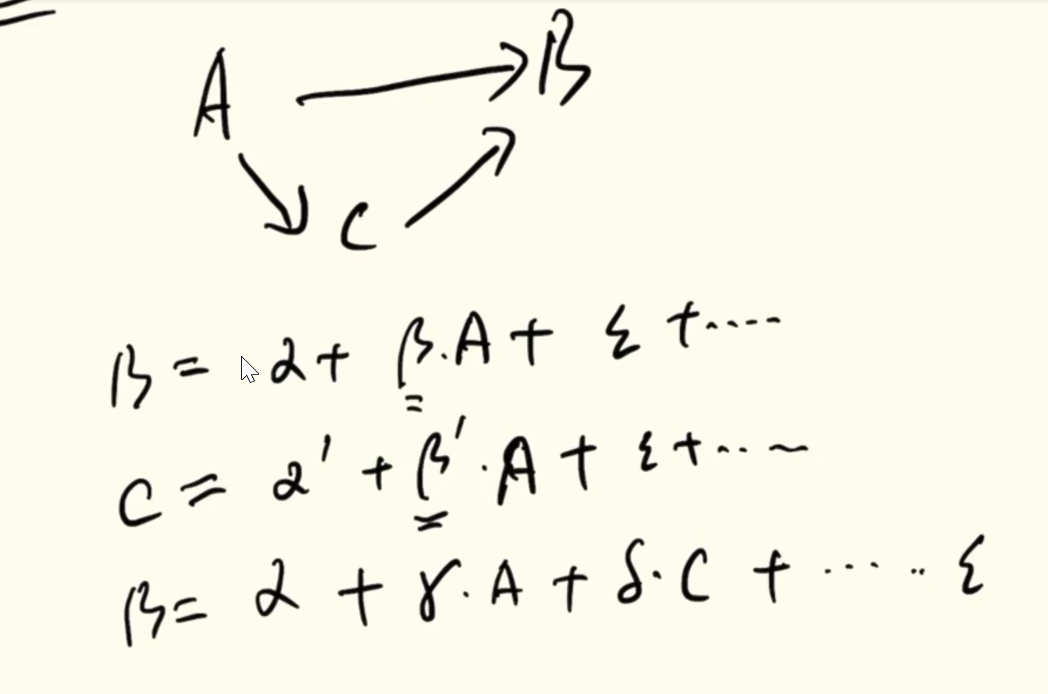 A → B
C
B = α + β.A + ε + ....
C = α' + β'.A + ε + ....
B = α + γ.A + δ.C + ...... ε